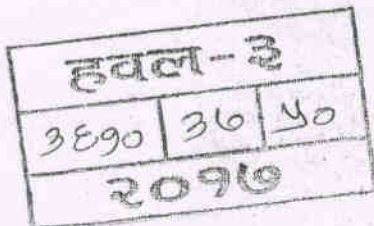 हवल-३
३६१० ३७ ५०
२०१७